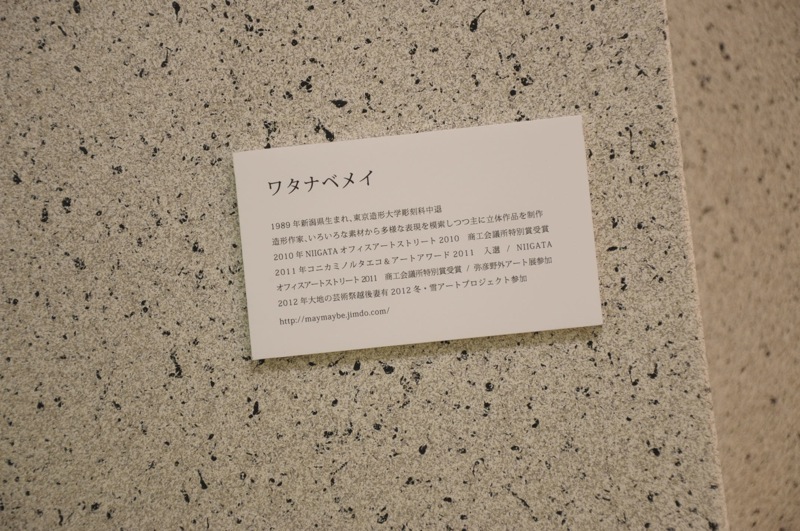 ワタナベメイ
1989年新潟県生まれ、東京造形大学彫刻科中退
造形作家、いろいろな素材から多様な表現を模索しつつ主に立体作品を制作
2010年NIIGATAオフィスアートストリート2010　商工会議所特別賞受賞
2011年コニカミノルタエコ&アートアワード2011　入選 / NIIGATA
オフィスアートストリート2011　商工会議所特別賞受賞 / 弥彦野外アート展参加
2012年大地の芸術祭越後妻有2012冬・雪アートプロジェクト参加
http://maymaybe.jimdo.com/